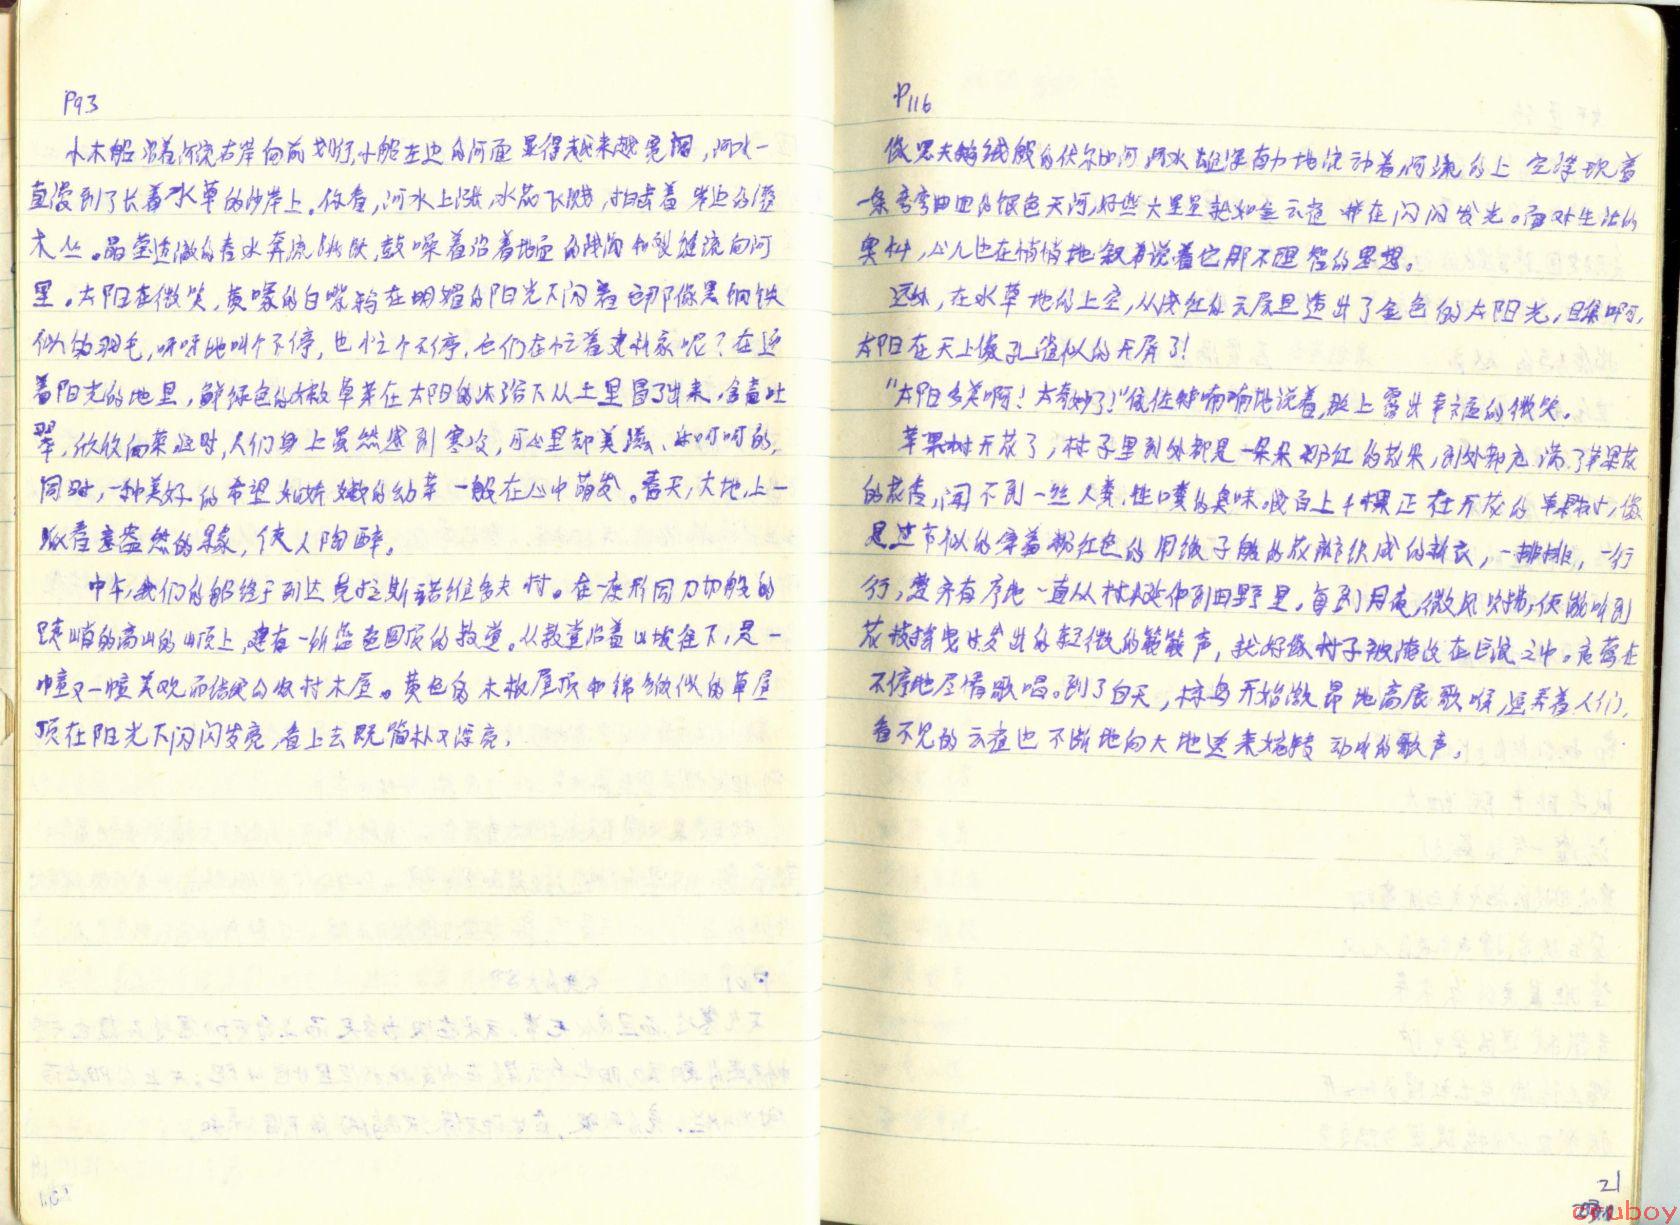 P93
小木船沿着河流右岸向前划行,小船左边的河面显得越来越宽阔,河水一
直漫到了长着水草的沙岸上。你看,河水上涨,水花飞溅,拍击着岸边的灌
木丛。晶莹透澈的春水奔流跳跃,鼓噪着沿着地面的残沟和裂缝流向河
里。太阳在微笑,黄嘴的白嘴鸦在明媚的阳光下闪着它那像黑钢铁
似的羽毛,呀呀地叫个不停,也忙个不停,它们在忙着建新家呢?在迎
着阳光的地里,鲜绿色的嫩草芽在太阳的沐浴下从土里冒了出来,含青吐
翠,欣欣向荣这时,人们身上虽然感到寒冷,可心里却美滋、乐呵呵的,
同时,一种美好的希望如娇嫩的幼芽一般在心中萌发。春天,大地上一
派春意盎然的景象,使人陶醉。
中午,我们的船终于到达克拉斯诺维多夫村。在一座形同刀切般的
陡峭的高山的山顶上,建有一所蓝色圆顶的教堂。从教堂沿着山坡往下,是一
幢又一幢美观而结实的农村木屋。黄色的木板屋顶和锦缎似的草屋
顶在阳光下闪闪发亮,看上去既简朴又漂亮.
P116
像黑天鹅绒般的伏尔加河,河水雄浑有力地流动着,河流的上空浮现着
一条弯弯曲曲的银色天河,好些大星星都如金云雀一样在闪闪发光。面对生活的
奥秘,心儿也在悄悄地叙说着它那不理智的思想。
远处,在水草地的上空,从浅红的云层里透出了金色的太阳光,且来啊,
太阳在天上像孔雀似的开屏了!
“太阳多美啊!太奇妙了!”侯佐林喃喃地说着,脸上露出幸福的微笑。
苹果树开花了,村子里到处都是一朵朵粉红的花朵,到处都充满了苹果花
的花香,闻不到一丝人粪、牲口粪的臭味。成百上千棵正在开花的苹果树,像
是过节似的穿着粉红色的用缎子般的花瓣织成的新衣,一排排,一行
行,整齐有序地一直从村头延伸到田野里。每到月夜,微风吹拂,便能听到
花枝摇曳时发出的轻微的簌簌声,就好像村子被淹没在巨浪之中。夜莺在
不停地尽情歌唱。到了白天,椋鸟开始激昂地高展歌喉,逗弄着人们,
看不见的云雀也不断地向大地送来婉转动听的歌声。
21